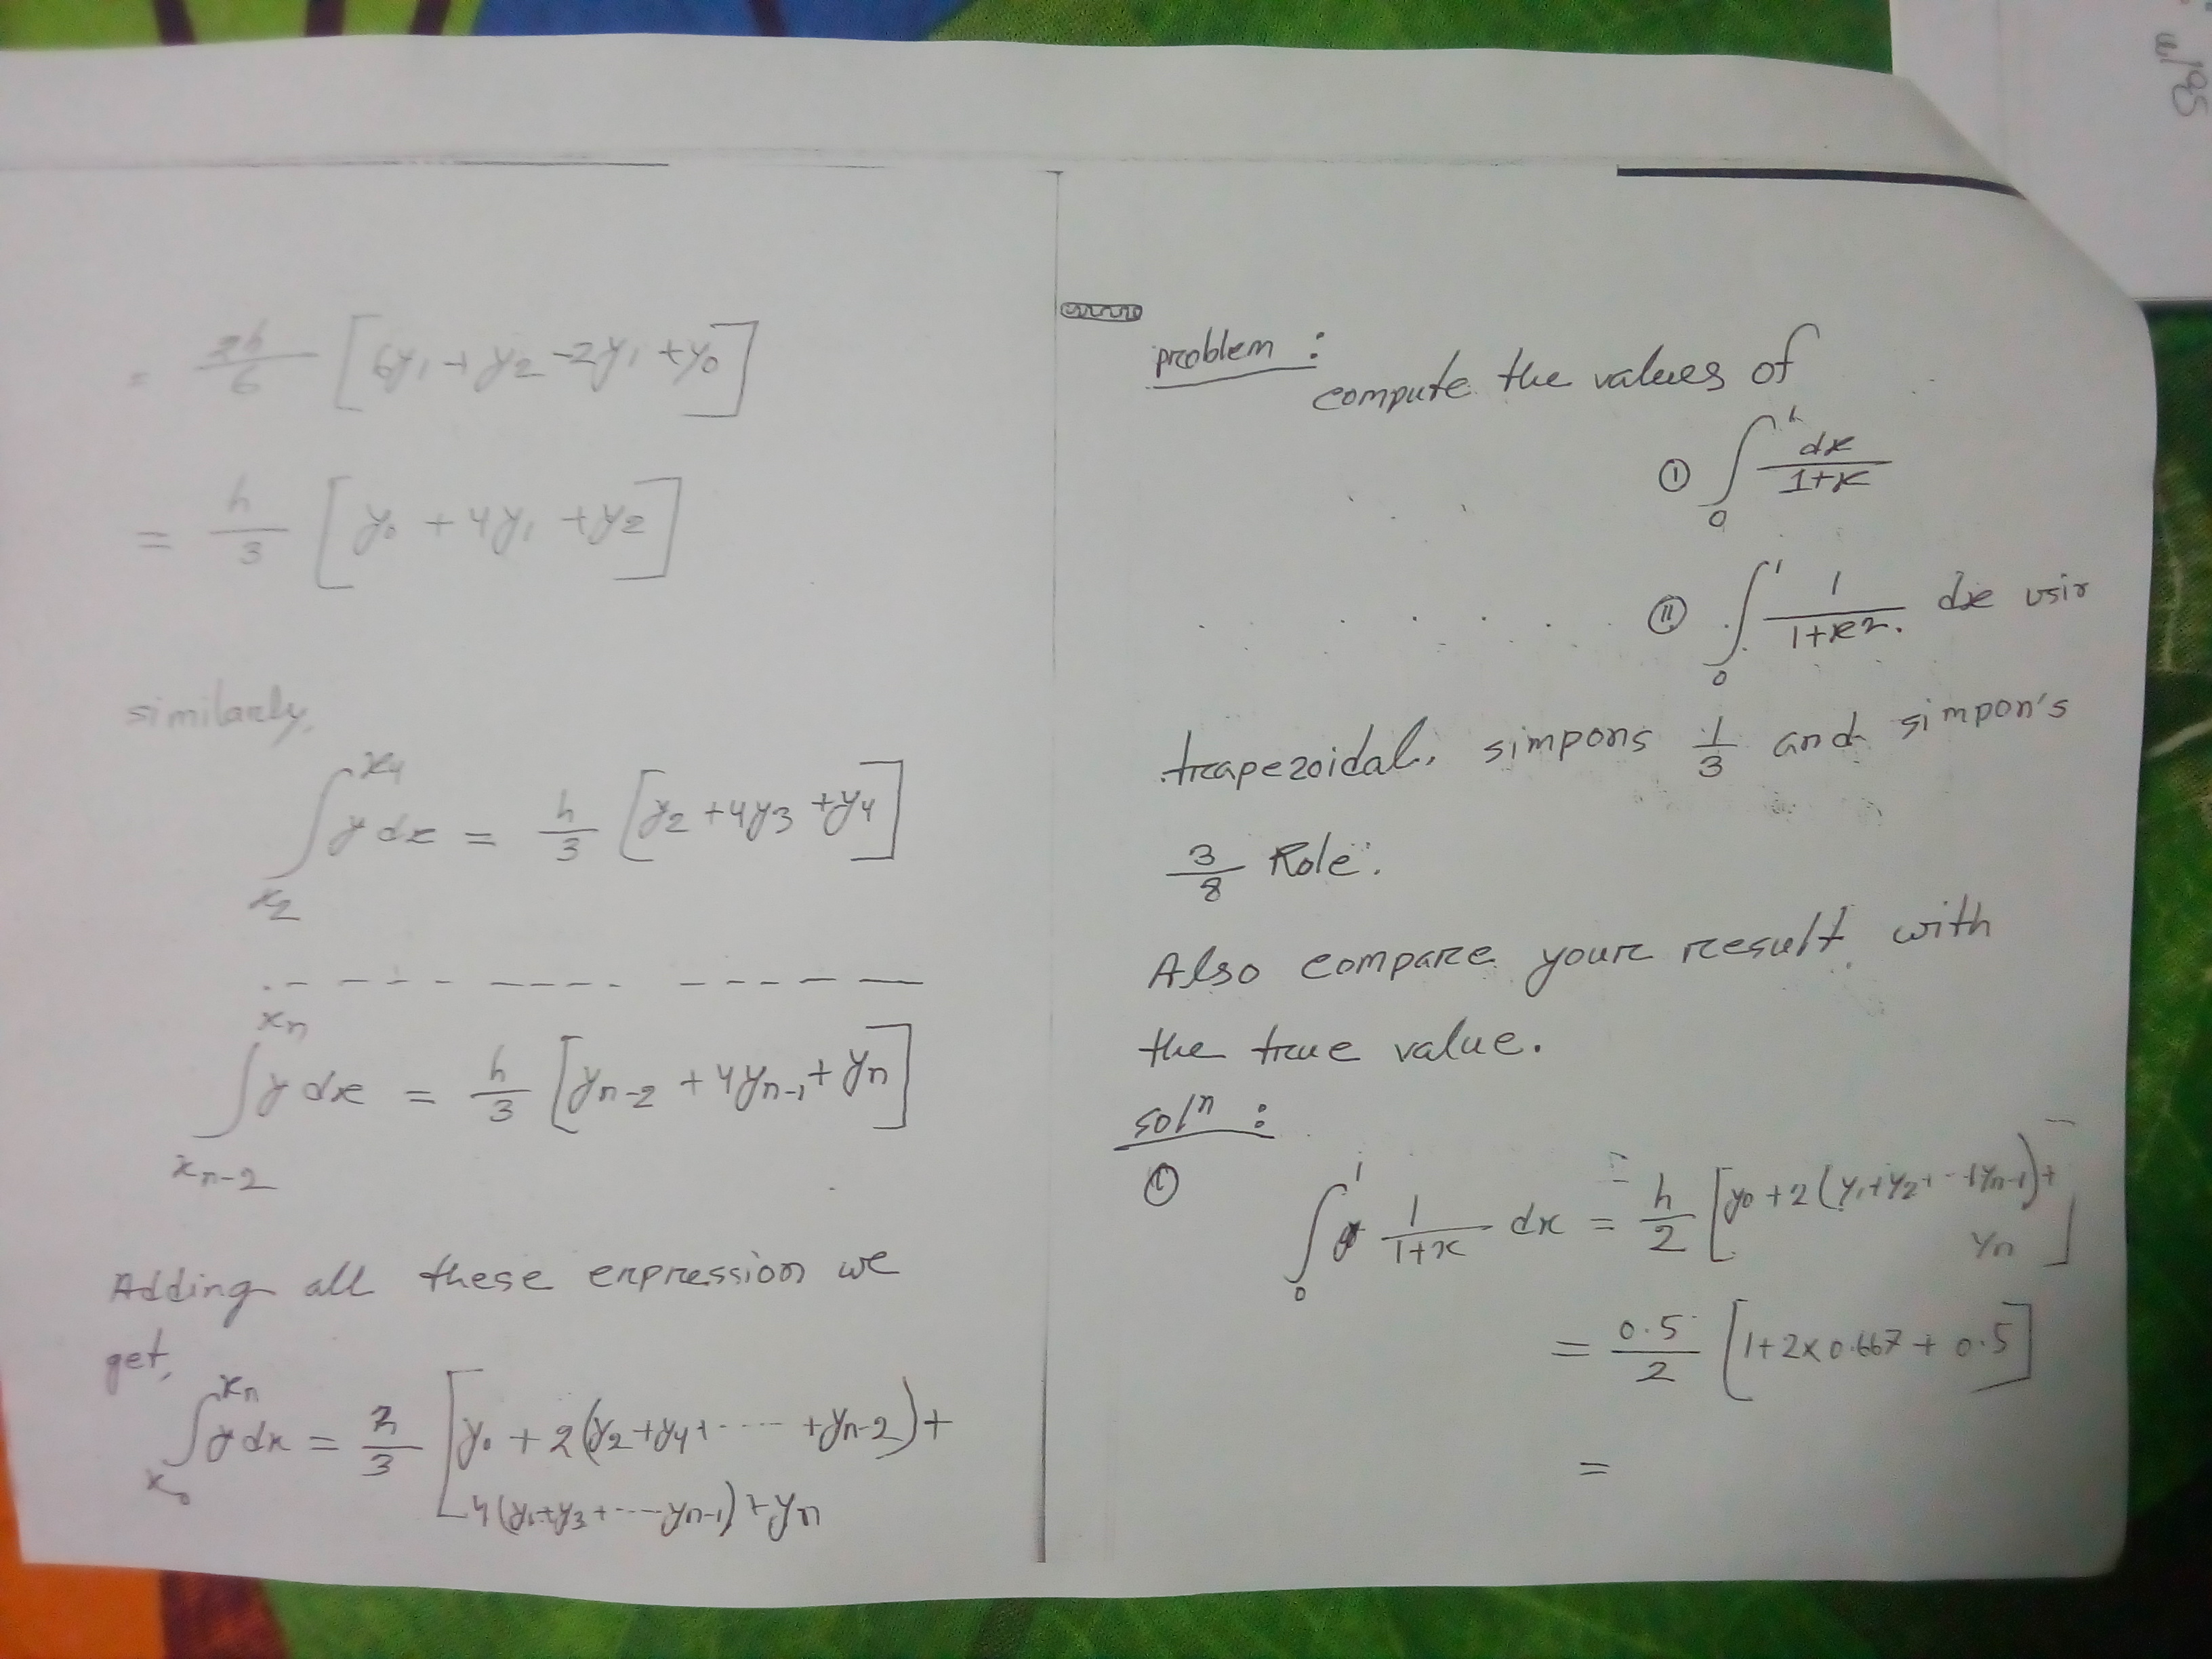 = 2h/6 [6y₁ + y₂ -2y₁ + y₀]
= h/3 [y₀ + 4y₁ + y₂]
similarly,
∫_{x₂}^{x₄} y dx = h/3 [y₂ + 4y₃ + y₄]
.- - - - - - - - - - - - - - -
∫_{xn-2}^{xn} y dx = h/3 [yn-2 + 4yn-1 + yn]
Adding all these expression we
get,
∫_{x₀}^{xn} y dx = h/3 [y₀ + 2(y₂+y₄+ ..... +yn-2) +
4(y₁+y₃+ ---- yn-1) + yn
problem :
compute the values of
① ∫_0^1 dx/1+x
② ∫_0^1 1/1+x2. dx usin
trapezoidal, simpons 1/3 and simpon's
3/8 Role.
Also compare your result with
the true value.
solⁿ :
① ∫_0^1 1/1+x dx = h/2 [y₀ + 2(y₁+y₂+ --+yn-1) +
yn]
= 0.5/2 [1+2×0.667 + 0.5]
=